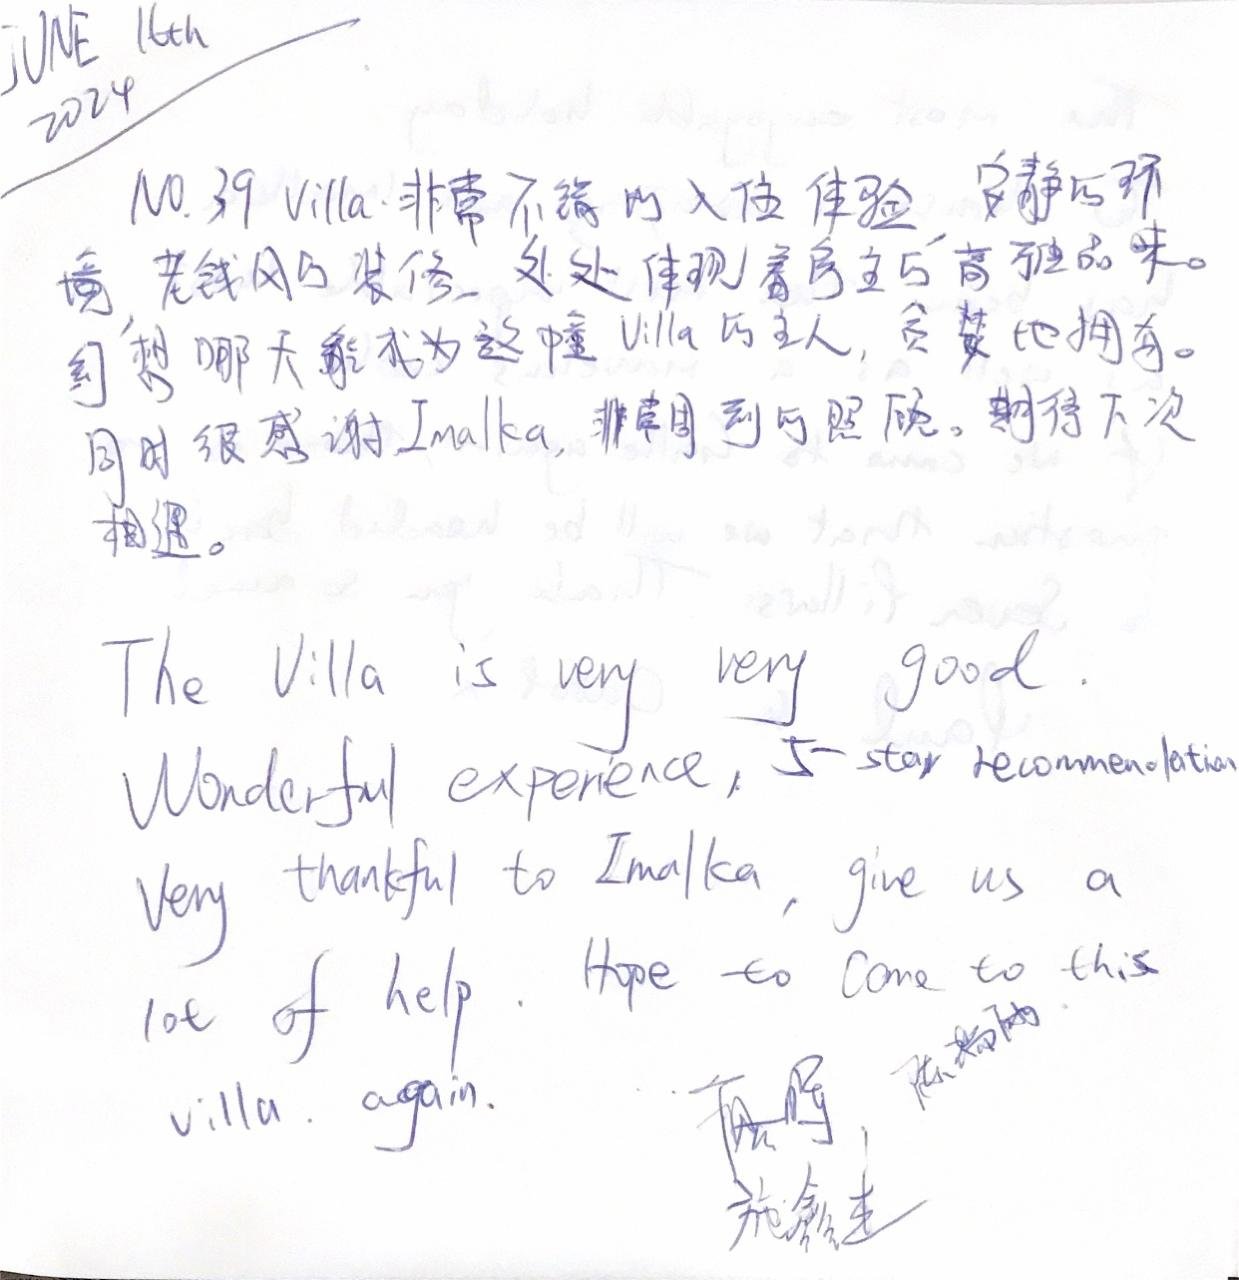 JUNE 16th
2024
NO.39 Villa 非常不错的入住体验, 安静的环
境, 老钱风的装修, 处处体现着房主的高雅品味。
幻想哪天能成为这幢Villa的主人, 负赘地拥有。
同时很感谢Imalka, 非常周到的照顾。期待下次
相遇。
The Villa is very very good.
Wonderful experience, 5-star recommendation
Very thankful to Imalka, give us a
lot of help. Hope to come to this
villa. again.
陈瑞雨
施鑫圭